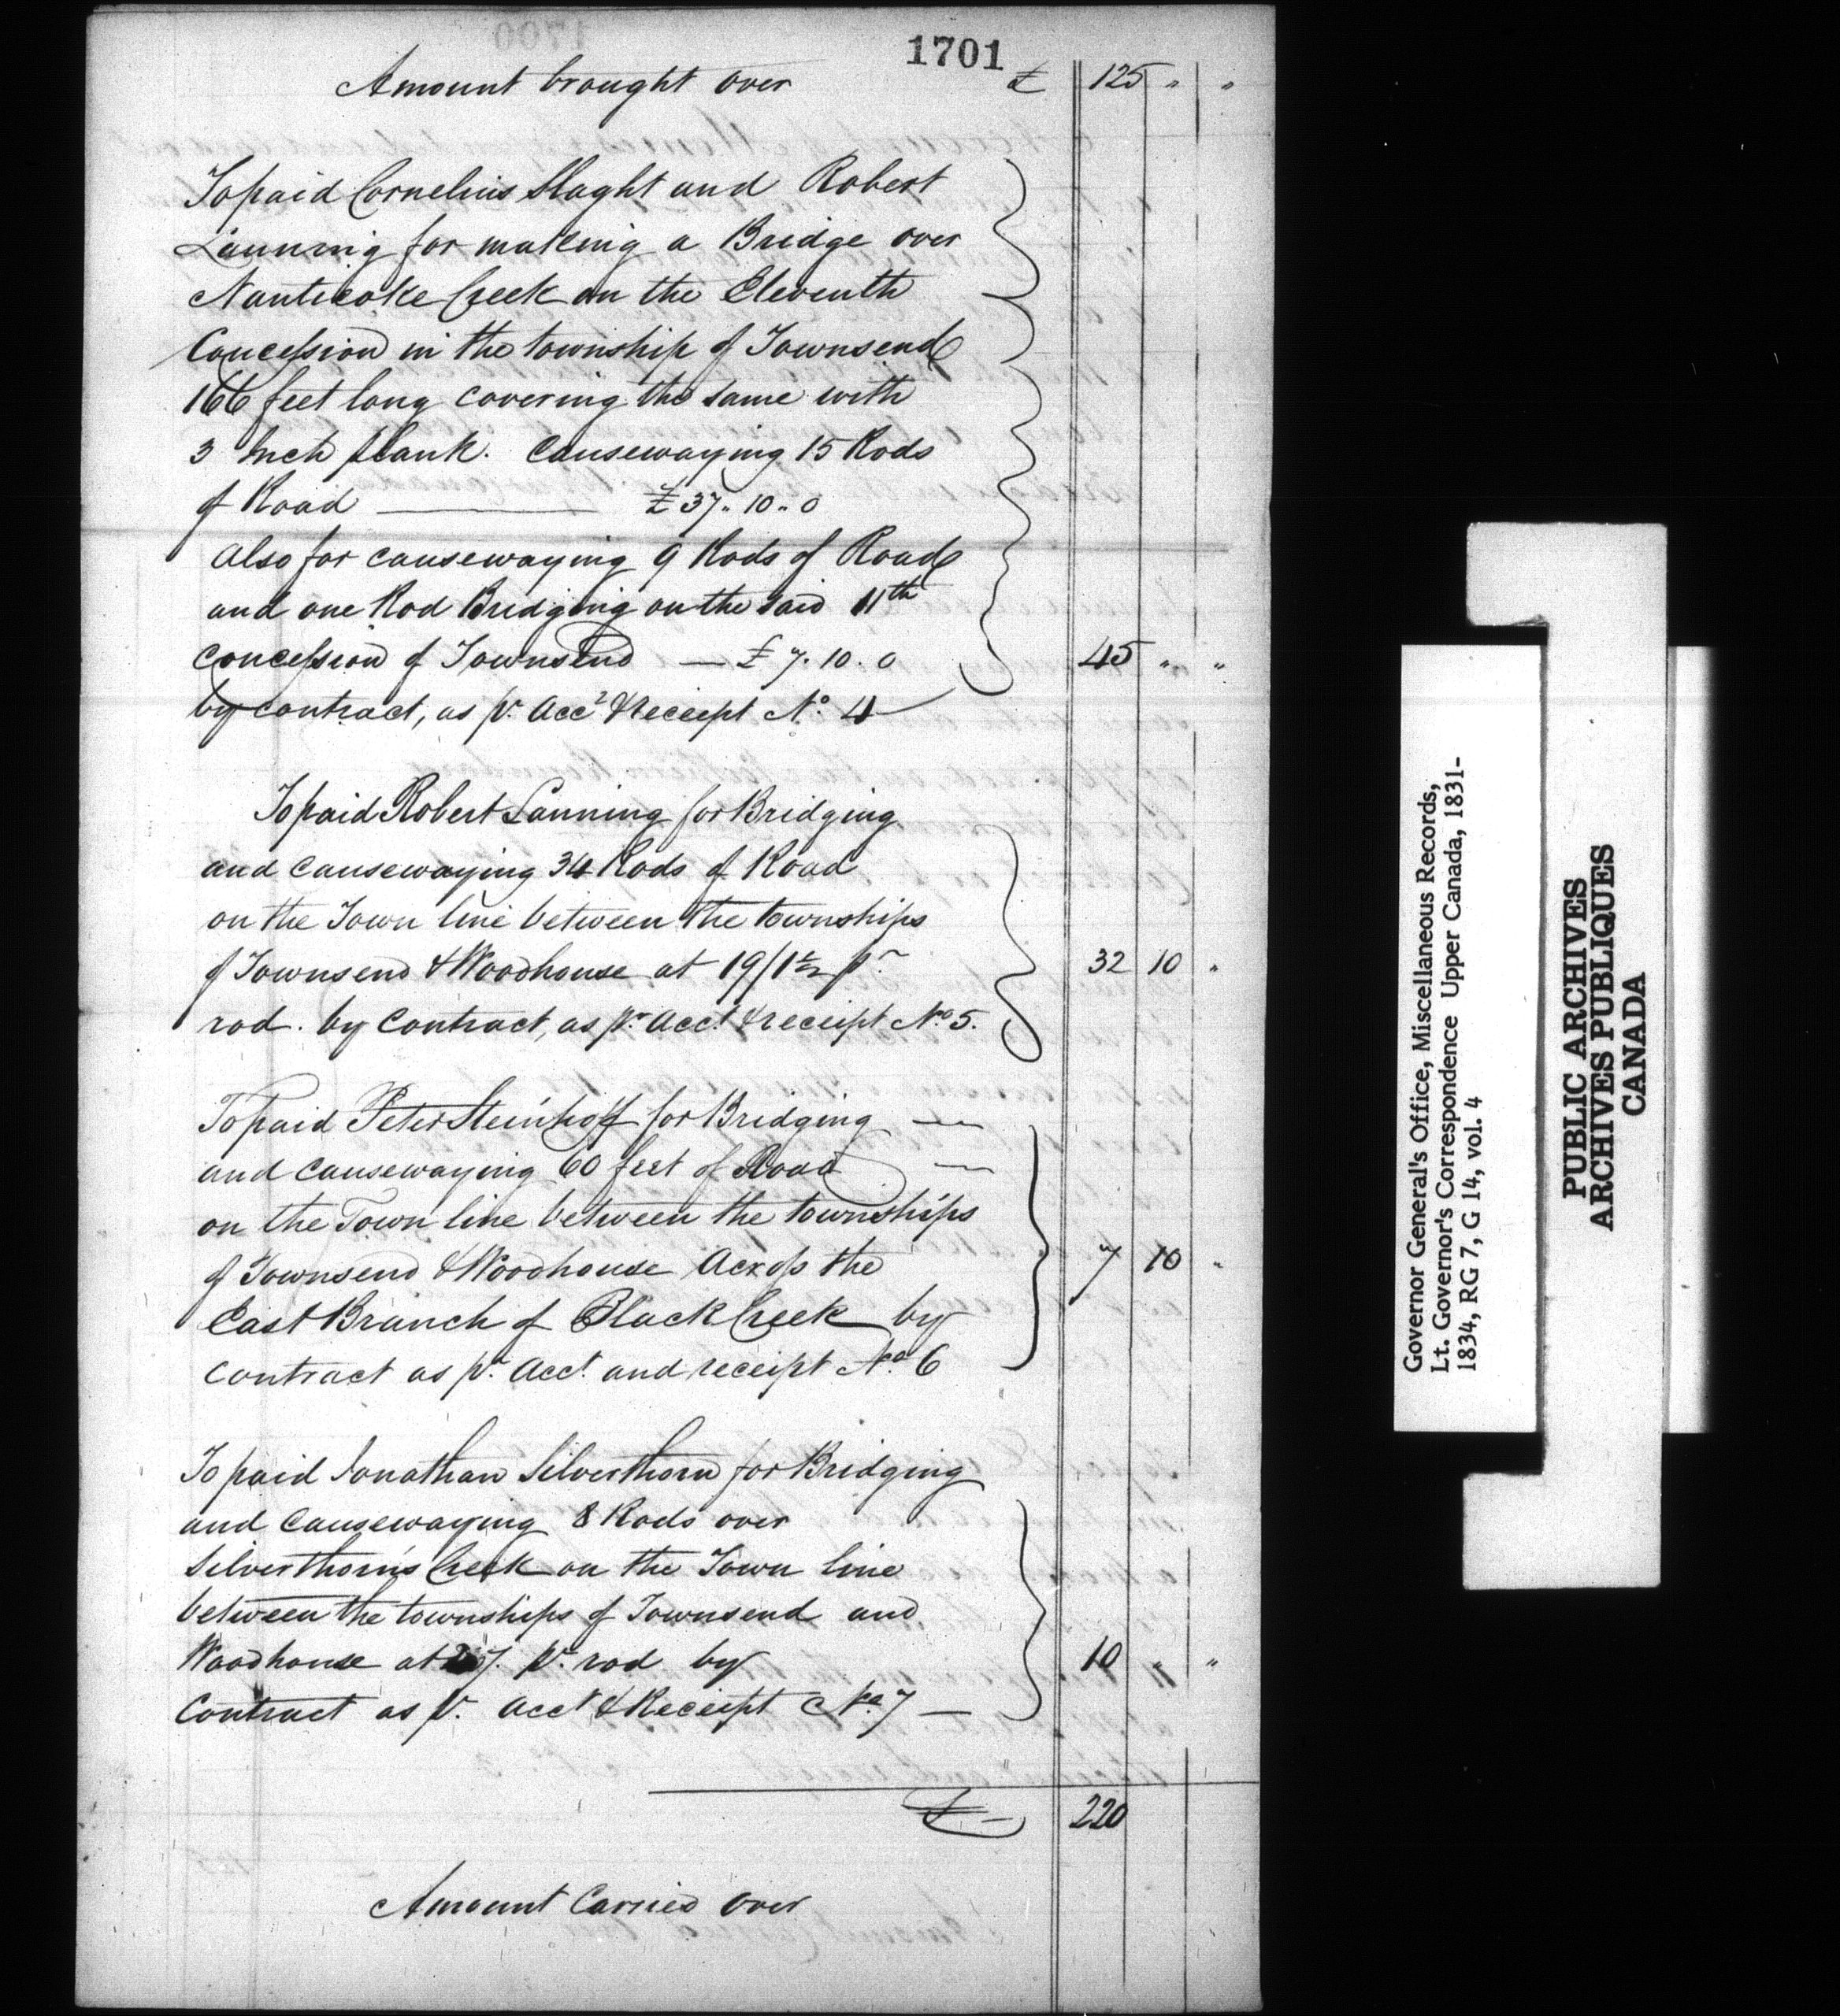 1701
Amount brought over £ 125 " "
To paid Cornelius Slaght and Robert
Lanning for making a Bridge over
Nanticoke Creek on the Eleventh
Concession in the township of Townsend
166 feet long covering the same with
3 Inch plank. Causewaying 15 Rods
of Road — £ 37 .. 10 .. 0
also for causewaying 9 Rods of Road
and one Rod Bridging on the said 11th
concession of Townsend — £ 7 . 10 . 0 45 " "
by contract, as pr. Acct & Receipt No. 4
To paid Robert Lanning for Bridging
and causewaying 34 Rods of Road
on the Town line between the townships
of Townsend & Woodhouse at 19/1½ pr 32 10 "
rod. by Contract, as pr. Acct. & receipt No 5.
To paid Peter Steinhoff for Bridging —
and causewaying 60 feet of Road —
on the Town line between the townships
of Townsend & Woodhouse Across the 7 10 "
East Branch of Black Creek by
contract as pr. Acct. and receipt No. 6
To paid Jonathan Silverthorn for Bridging
and Causewaying 8 Rods over
Silverthorn's Creek on the Town line
between the townships of Townsend and
Woodhouse at pr. rod by 10 " "
Contract as pr. Acct & Receipt No. 7 —
£ 220
Amount Carried over
Governor General's Office, Miscellaneous Records,
Lt. Governor's Correspondence Upper Canada, 1831-
1834, RG 7, G 14, vol. 4
PUBLIC ARCHIVES
ARCHIVES PUBLIQUES
CANADA